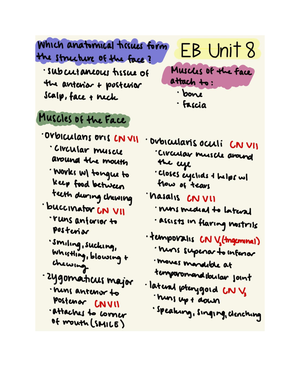 Which anatomical tissues form
the structure of the face?
• subcutaneous tissue of
the anterior + posterior
scalp, face + neck
EB Unit 8
Muscles of the face
attach to:
• bone
• fascia
Muscles of the Face
• orbicularis oris CN VII
• circular muscle
around the mouth
• works w/ tongue to
keep food between
teeth during chewing
• buccinator CN VII
• runs anterior to
posterior
• smiling, sucking,
whistling, blowing +
chewing
• zygomaticus major
• runs anterior to
posterior CN VII
• attaches to corner
of mouth (SMILE)
• orbicularis oculi CN VII
• circular muscle around
the eye
• closes eyelids + helps w/
flow of tears
• nasalis CN VII
• runs medial to lateral
• assists in flaring nostrils
• temporalis CN V₃ (trigeminal)
• runs superior to inferior
• moves mandible at
temporomandibular joint
• lateral pterygoid CN V₃
• runs up + down
• speaking, singing, clenching